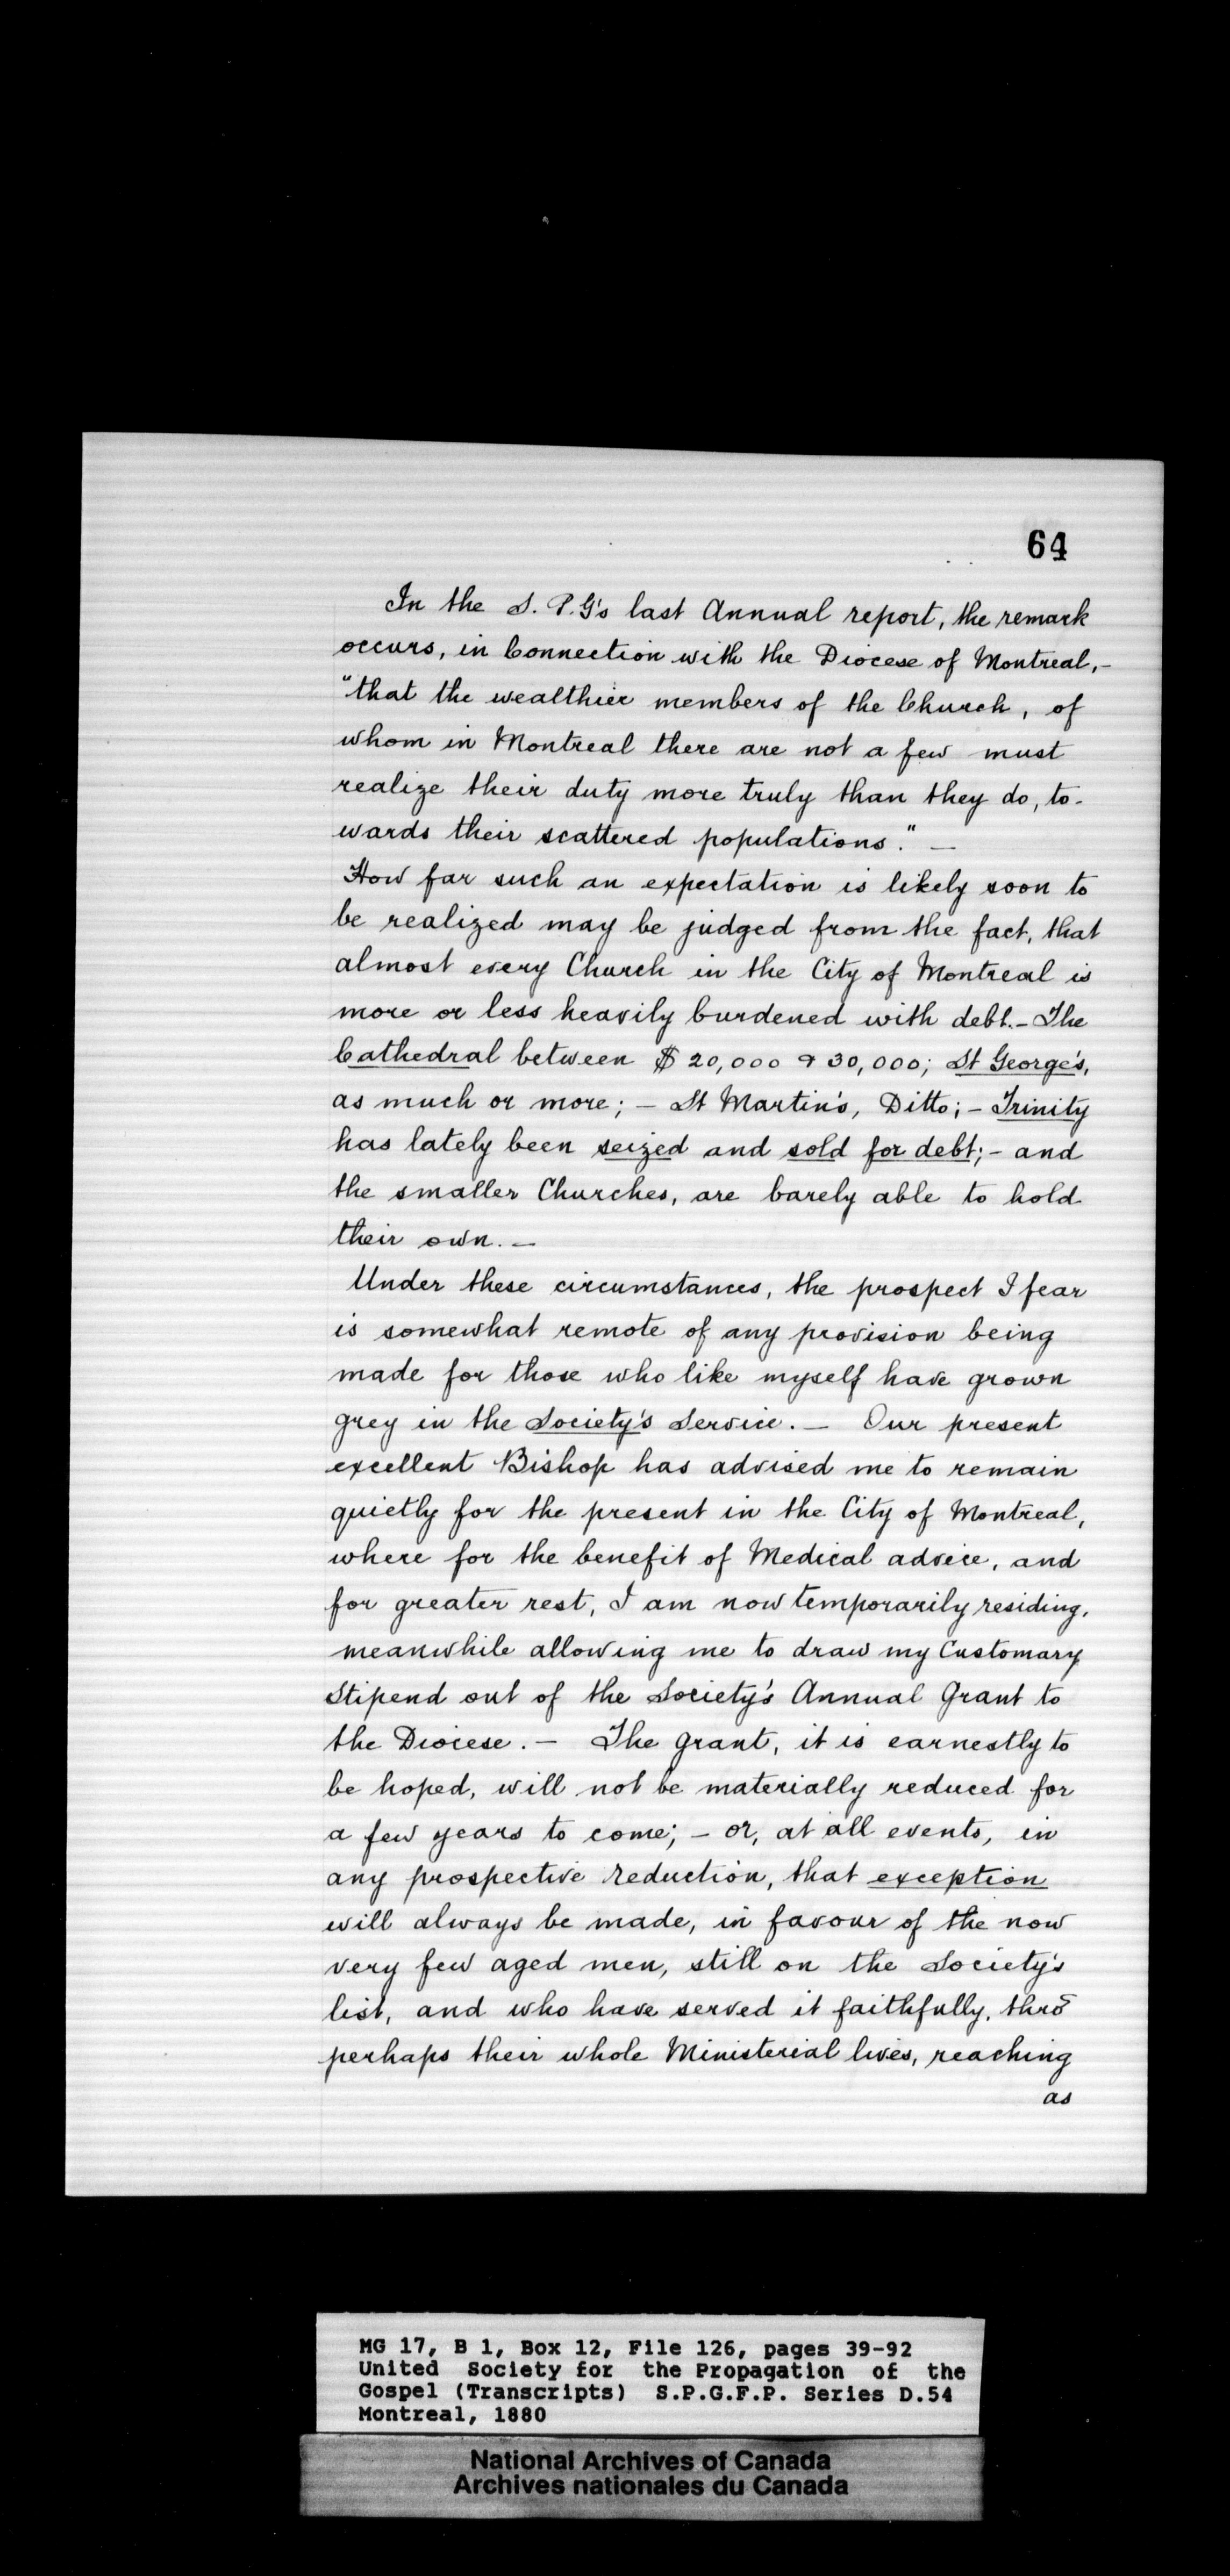 64
In the S. P. G's last Annual report, the remark
occurs, in Connection with the Diocese of Montreal,-
"that the wealthier members of the Church, of
whom in Montreal there are not a few must
realize their duty more truly than they do, to-
wards their scattered populations." —
How far such an expectation is likely soon to
be realized may be judged from the fact, that
almost every Church in the City of Montreal is
more or less heavily burdened with debt.- The
Cathedral between $ 20,000 & 30,000; St George's,
as much or more; - St Martin's, Ditto; - Trinity
has lately been seized and sold for debt; - and
the smaller Churches, are barely able to hold
their own. —
Under these circumstances, the prospect I fear
is somewhat remote of any provision being
made for those who like myself have grown
grey in the Society's Service. — Our present
excellent Bishop has advised me to remain
quietly for the present in the City of Montreal,
where for the benefit of Medical advice, and
for greater rest, I am now temporarily residing,
meanwhile allowing me to draw my Customary
Stipend out of the Society's Annual Grant to
the Diocese. — The Grant, it is earnestly to
be hoped, will not be materially reduced for
a few years to come; - or, at all events, in
any prospective reduction, that exception
will always be made, in favour of the now
very few aged men, still on the Society's
list, and who have served it faithfully, thro̅
perhaps their whole Ministerial lives, reaching
as
MG 17, B 1, Box 12, File 126, pages 39-92
United Society for the Propagation of the
Gospel (Transcripts) S.P.G.F.P. Series D.54
Montreal, 1880
National Archives of Canada
Archives nationales du Canada